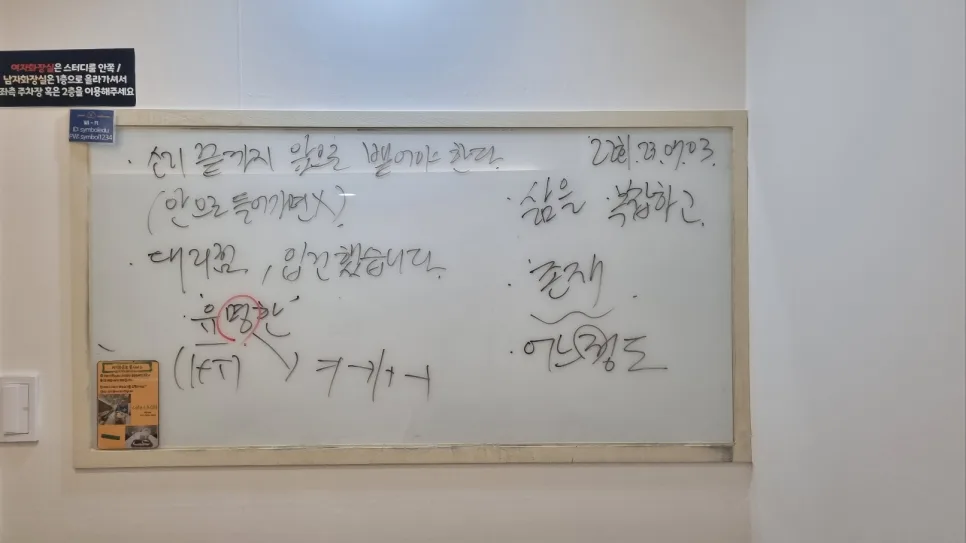 여자화장실은 스터디룸 안쪽 /
남자화장실은 1층으로 올라가셔서
좌측 주차장 혹은 2층을 이용해주세요
Wi-Fi
ID:symboledu
PW:symbol1234
· 소리 끝까지 앞으로 뱉어야 한다.
(안으로 들어가면X)
· 대리점, 입건했습니다.
유명한
(ㅣ+ㅜ)
22회. 23.07.03.
· 삶을 복잡하고.
· 존재
· 어느정도